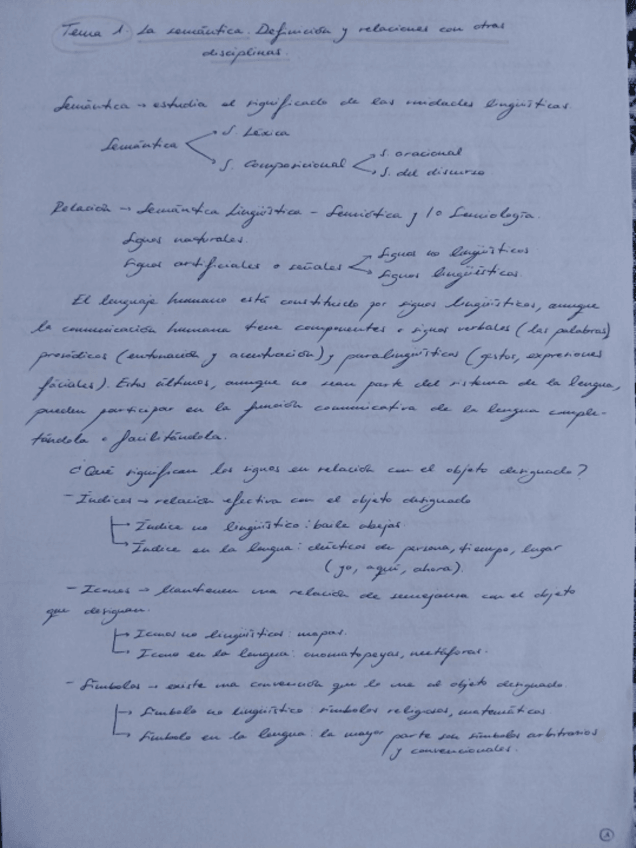 Tema 1. La semántica. Definición y relaciones con otras
disciplinas.
Semántica → estudia el significado de las unidades lingüísticas.
Semántica
S. Léxica
S. Composicional
S. oracional
S. del discurso
Relación → Semántica Lingüística - Semiótica y/o Semiología.
Signos naturales.
Signos artificiales o señales
Signos no lingüísticos
Signos lingüísticos.
El lenguaje humano está constituido por signos lingüísticos, aunque
la comunicación humana tiene componentes o signos verbales (las palabras)
prosódicos (entonación y acentuación) y paralingüísticos (gestos, expresiones
faciales). Estos últimos, aunque no sean parte del sistema de la lengua,
pueden participar en la función comunicativa de la lengua comple-
tándola o facilitándola.
¿Qué significan los signos en relación con el objeto designado?
- Índices → relación efectiva con el objeto designado
→ Índice no lingüístico: baile abejas
→ Índice en la lengua: deícticos de persona, tiempo, lugar
(yo, aquí, ahora)
- Iconos → Mantienen una relación de semejanza con el objeto
que designan.
→ Iconos no lingüísticos: mapas.
→ Icono en la lengua: onomatopeyas, metáforas.
- Símbolos → existe una convención que lo une al objeto designado.
→ Símbolo no lingüístico: símbolos religiosos, matemáticos
→ Símbolo en la lengua: la mayor parte son símbolos arbitrarios
y convencionales.
1